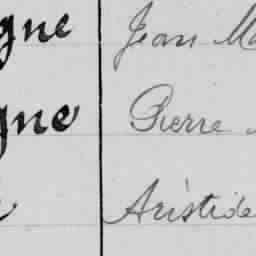 gne Jean Ma
gne Pierre
Aristide